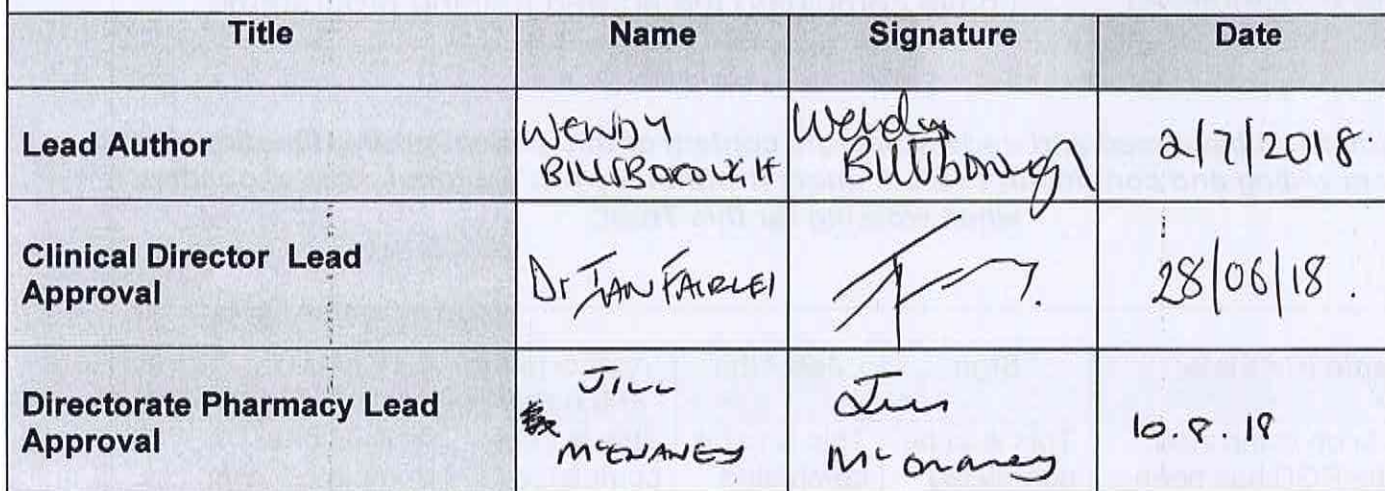 Title Name Signature Date
Lead Author WENDY BILLSBOROUGH Wendy Billsborough 2/7/2018.
Clinical Director Lead Approval Dr IAN FAIRLEI 28/06/18.
Directorate Pharmacy Lead Approval JILL McENANEY Jill McEnaney 10.8.18